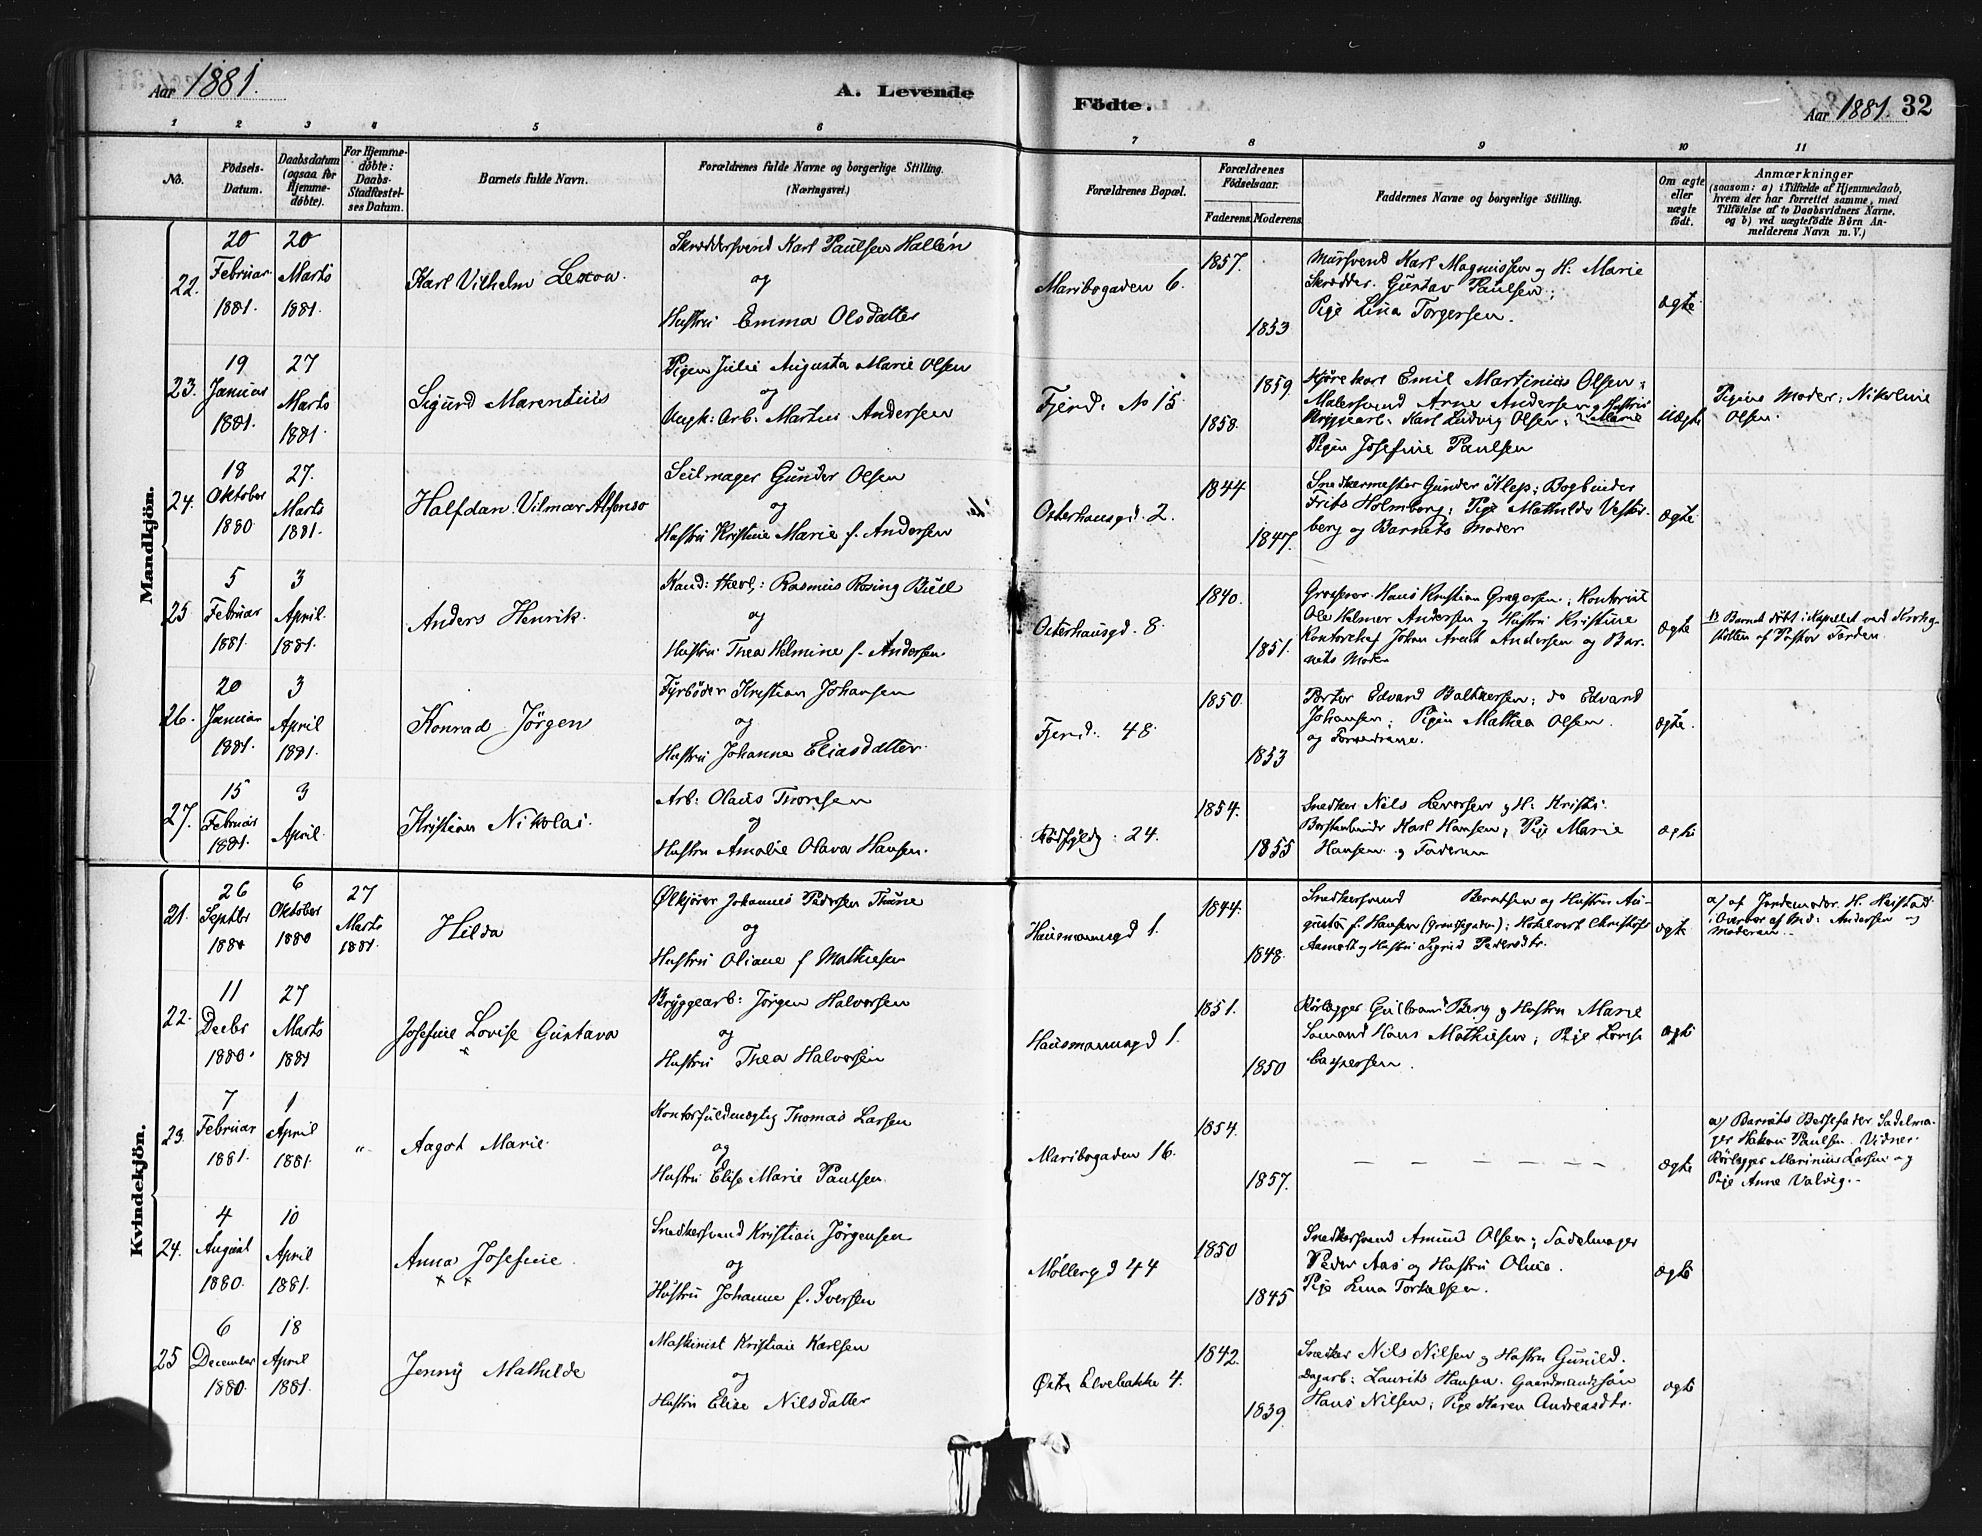 Aar 1881.
A. Levende
Födte.
Aar 1881. 32
1 2 3 4 5 6 7 8 9 10 11
No.
Födsels-
Datum.
Daabsdatum
(ogsaa for
Hjemme-
döbte).
For Hjemme-
døbte:
Daabs-
Stadfæstel-
ses Datum.
Barnets fulde Navn.
Forældrenes fulde Navne og borgerlige Stilling.
(Næringsvei.)
Forældrenes Bopæl.
Forældrenes
Födselsaar.
Faderens. Moderens.
Faddernes Navne og borgerlige Stilling.
Om ægte
eller
uægte
födt.
Anmærkninger
(saasom: a) i Tilfælde af Hjemmedaab,
hvem der har forrettet samme, med
Tilföielse af to Daabsvidners Navne,
og b) ved uægtefödte Börn An-
melderens Navn m. V.)
Mandkjön.
22.
20
Februar
1881.
20
Marts
1881.
Karl Vilhelm
Skræddersvend Karl Paulsen Hallén
og
Hustru Emma Olsdatter
Maribogaden 6.
1857.
1853
Mursvend Karl Magnussen og H: Marie
Skrædder Gustav Paulsen;
Pige Lina Torgersen.
ægte
23.
19
Januar
1881.
27
Marts
1881.
Sigurd Marentius
Pigen Julie Augusta Marie Olsen
og
Ungk: Arb: Martin Andersen
Fjerd: No 15
1859
1858.
Kjörekarl Emil Martinius Olsen;
Malersvend Arne Andersen og Hustru
Marie
Bryggearb: Karl Ludvig Olsen;
Pigen Josefine Paulsen
uægte
Pigens Moder: Nikoline
Olsen.
24.
18
Oktober
1880
27.
Marts
1881.
Halfdan Vilmar Alfonso
Seilmager Gunder Olsen
og
Hustru Kristine Marie f. Andersen
Osterhausgd. 2.
1844
1847.
Snedkermester Gunder Klep; Bogbinder
Frits Holmborg; Pige Mathilde Vester-
berg og Barnets Moder
ægte
25
5
Februar
1881.
3
April
1881.
Anders Henrik.
Kand: theol: Rasmus Rosing Bull
og
Hustru Thea Helmine f. Andersen
Osterhausgd. 8.
1840.
1851.
Grosserer Hans Kristian Gregersen; Kontorist
Ole Helmer Andersen og Hustru Kristine
Kontorchef Johan Arent Andersen og Bar-
nets Moder
ægte
Barnet döbt i Kapellet ved Krohg-
stötten af Pastor Førden.
26.
20
Januar
1881.
3
April
1881.
Konrad Jörgen
Fyrböder Kristian Johansen
og
Hustru Johanne Eliasdatter
Fjerd: 48.
1850.
1853
Porter Edvard Baltzersen; do Edvard
Johansen; Pigen Mathea Olsen.
og Forældrene.
ægte.
27.
15
Februar
1881.
3
April.
Kristian Nikolai.
Arb: Olaus Thoresen
og
Hustru Amalie Olava Hansen.
24.
1854.
1855
Snedker Nils Leversen og H: Kristi:
Børstenbinder Karl Hansen; Pige Marie
Hansen og Faderen
ægte
Kvindekjön.
21.
26
Septbr
1880
6
Oktober
1880
27
Marts
1881.
Hilda
Ølkjører Johannes Pedersen Thune
og
Hustru Oliane f Mathiesen
Hausmannsgd 1.
1844.
1848.
Snedkersvend Berntsen og Hustru Au-
gusta f. Hansen (Grændsegaden); Hotelvert Christoffer
Aamodt og Hustru Sigrid Pedersdtr.
ægte
a) af Jordemoder H. Neistad
i Overvær af Md: Andersen og
Moderen.
22.
11
Decbr
1880.
27
Marts
1881
Josefine Lovise Gustava
Bryggearb: Jörgen Halvorsen
og
Hustru Thea Halvorsen
Hausmannsgd 1.
1851.
1850
Rörlægger Gulbrand Berg og Hustru Marie
Sømand Hans Mathiesen; Pige Lovise
Caspersen.
ægte
23.
7
Februar
1881.
1
April
1881.
„
Aagot Marie
Kontorfuldmægtig Thomas Larsen
og
Hustru Elise Marie Paulsen
Maribogaden 16.
1854.
1857.
— — — — — —
ægte
a) Barnets Bestefader Sadelma-
ger Hakon Paulsen. Vidner.
Rörlægger Marinius Larsen og
Pige Anne Valvig.
24.
4
August
1880.
10
April
1881.
Anna Josefine.
Snedkersvend Kristian Jörgensen
og
Hustru Johanne f. Iversen
Møllergd 44
1850
1845
Snedkersvend Amund Olsen; Sadelmager
Peder Aas og Hustru Oline.
Pige Lina Torkelsen.
ægte
25
6
December
1880.
18
April
1881.
Jenny Mathilde
Maskinist Kristian Karlsen
og
Hustru Elise Nilsdatter
Østre Elvebakke 4.
1842.
1839.
Snedker Nils Nilsen og Hustru Gunild.
Dagarb: Laurits Hansen. Gaardmandssön
Hans Nilsen; Pige Karen Andreasdtr.
ægte